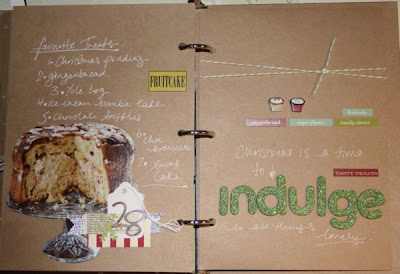 favourite Treats
1. Christmas pudding
2. gingerbread
3. Yule log
4. ice cream bombe cake
5. chocolate truffles
6. choc brownies
7. Xmas Cake
FRUITCAKE
28
gingerbread
sugar plums
candy canes
Christmas is a time
to
TASTY TREATS
indulge
in all things
lovely